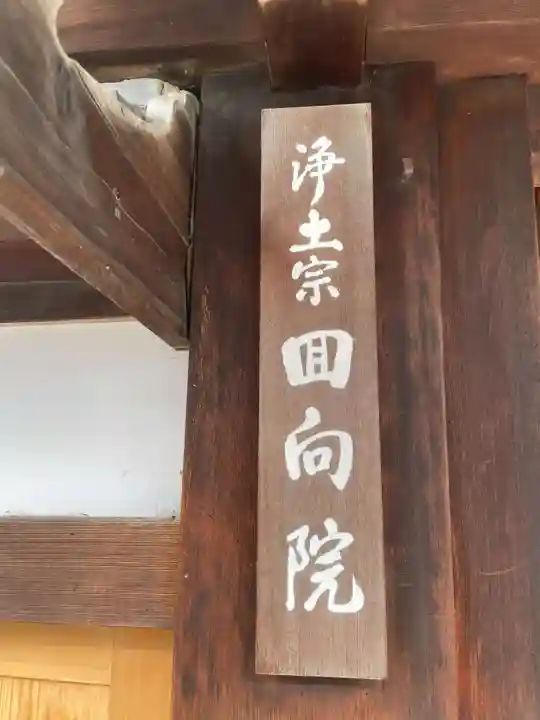 浄土宗回向院